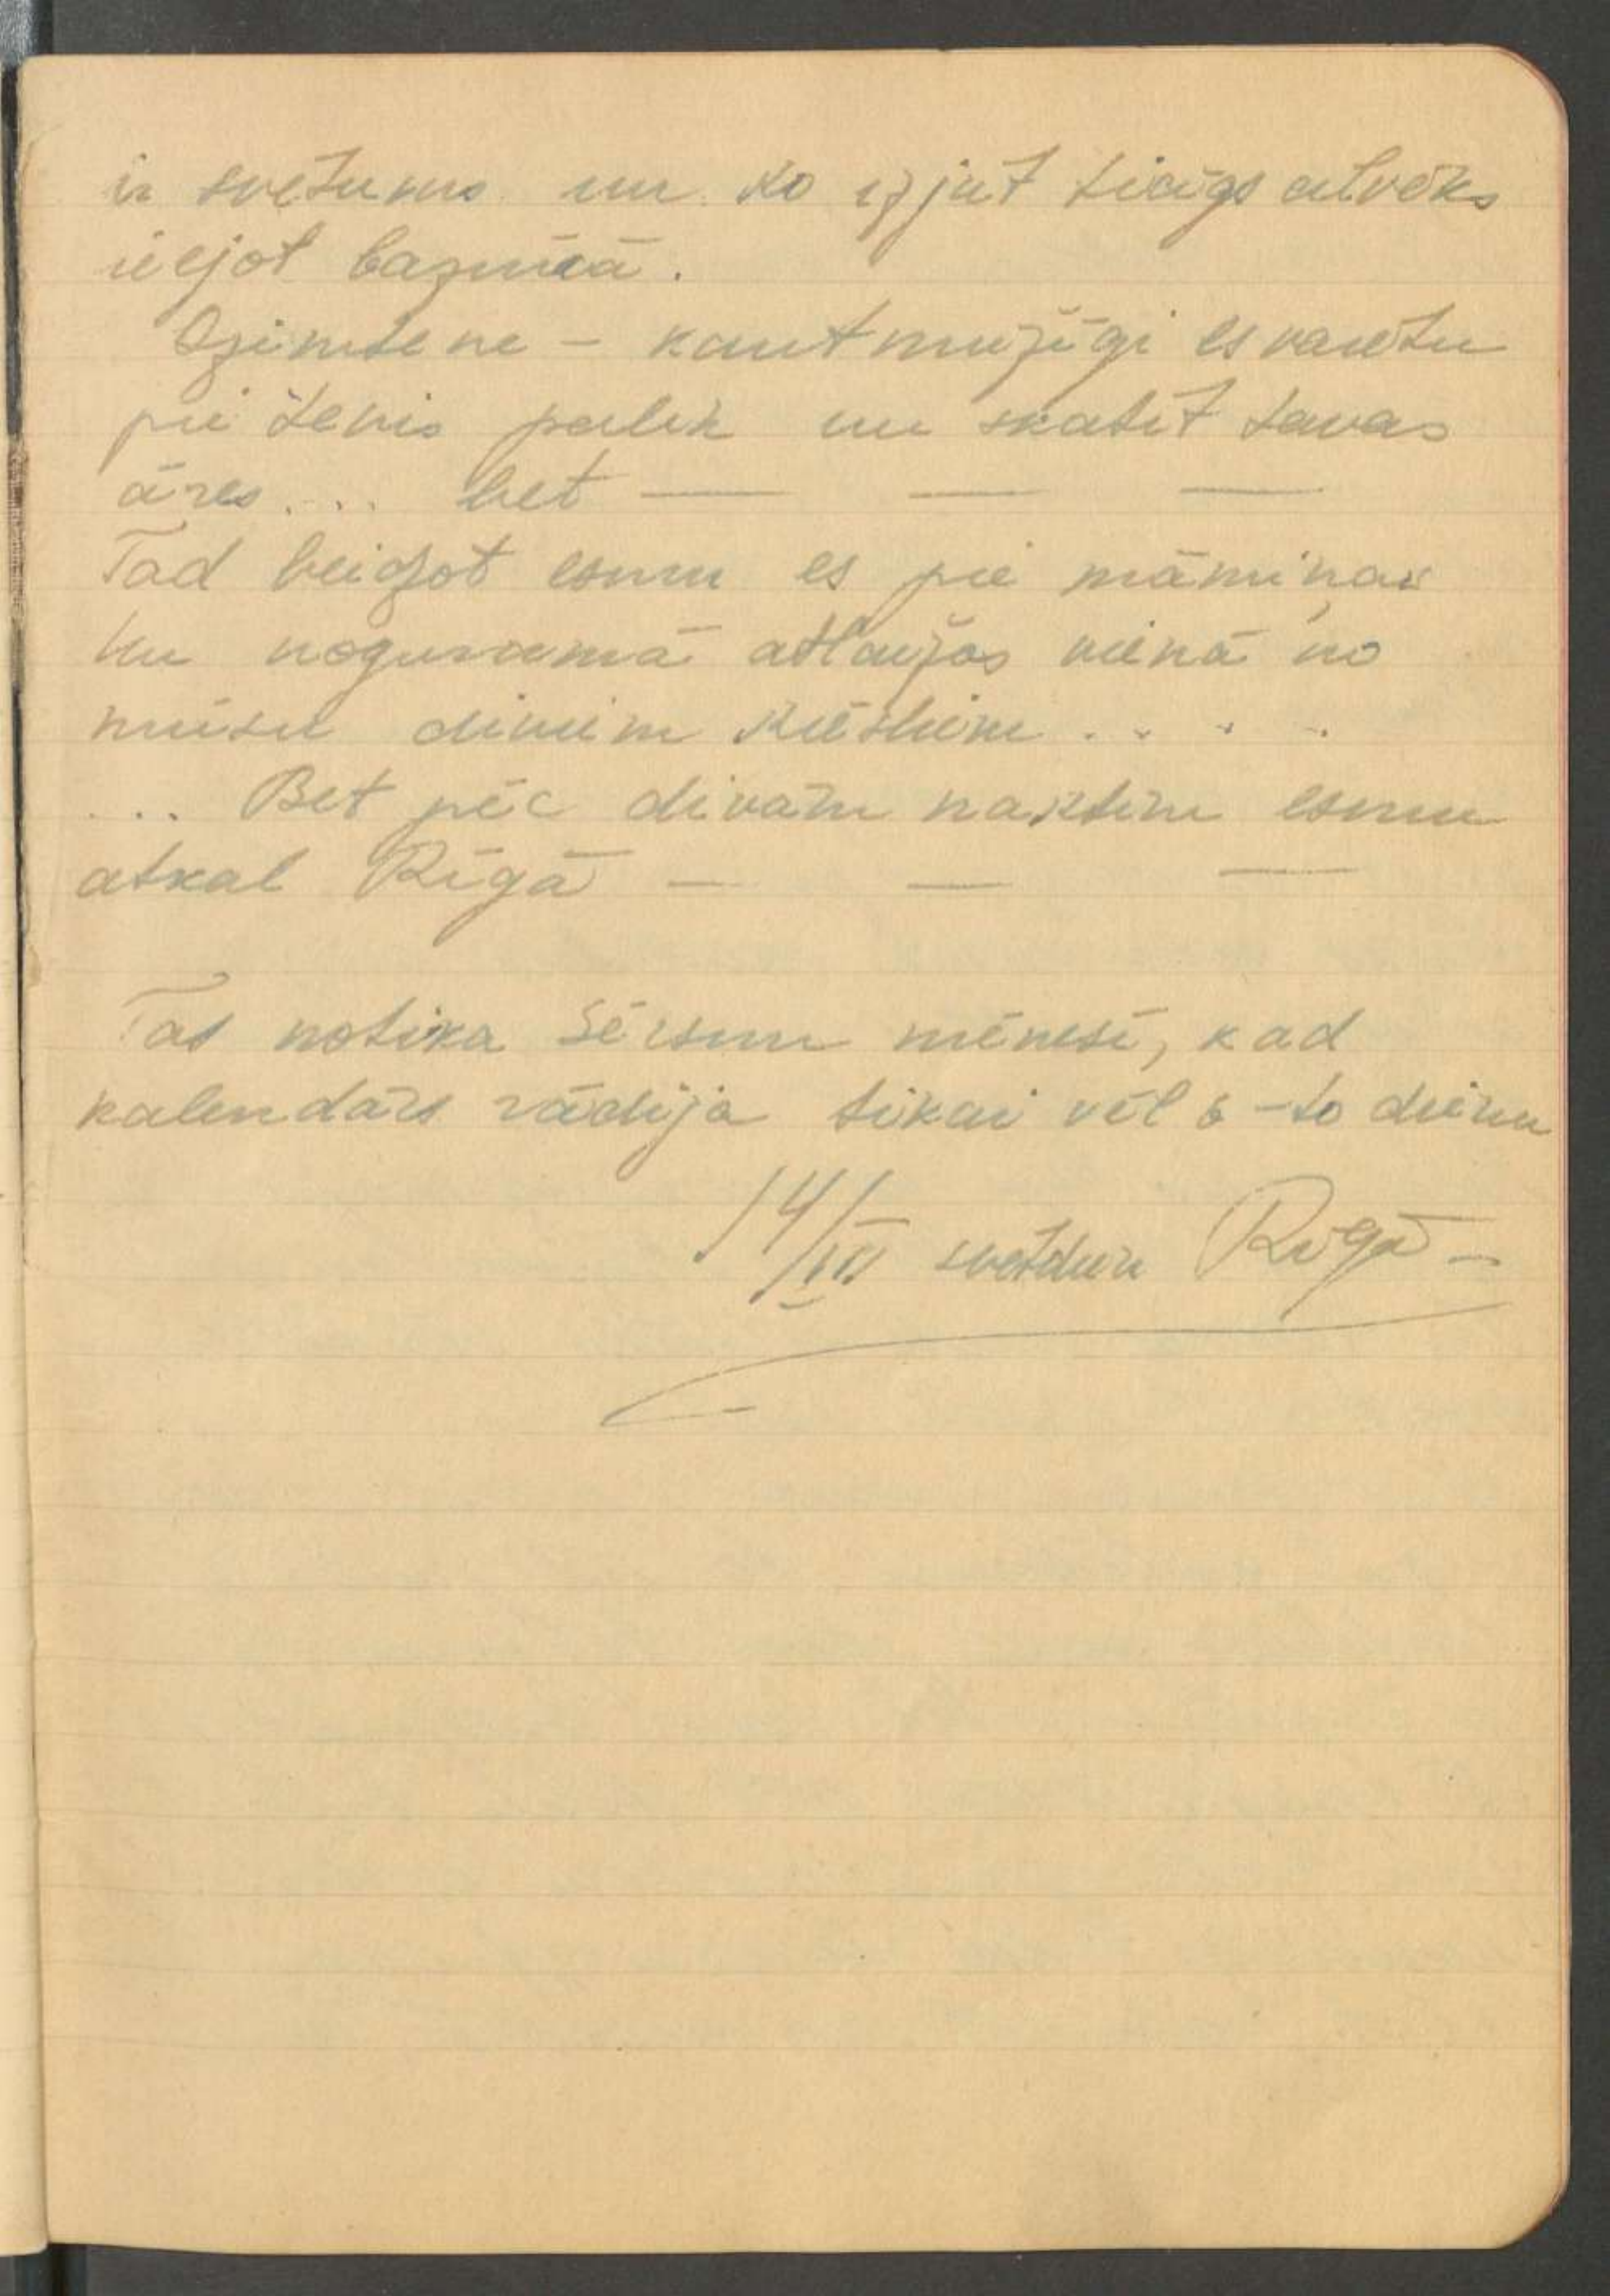 ir svetums un ko izjut ticīgs cilvēks
ieejot baznīcā.
Dzimtene - kaut mūžīgi es varētu
pie tevis palik un skatīt tavas
āres... bet — — —
Tad beidzot esmu es pie māmiņas
un nogurumā atlaižos vienā no
mūsu diviem krēsliem....
... Bet pēc divām naktīm esmu
atkal Rīgā — — —
Tas notika Sērsnu mēnesī, kad
kalendārs rādīja tikai vēl 6-to dienu
14/III svētdien Rīgā -